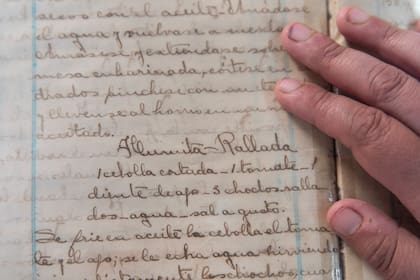 con el aceite. Añadase
el agua y vuelvase a
Amasar, y extiendase
mesa enharinada, cortese en
drados pinchese con un
y llevense al horno en
aceitado.
Humita-Rallada
1 cebolla cortada - 1 tomate - 1
diente de ajo - 3 choclos ralla
dos - agua - sal a gusto.
Se frie en aceite la cebolla el toma
te y el ajo; se le echa agua hirviendo
los choclos,